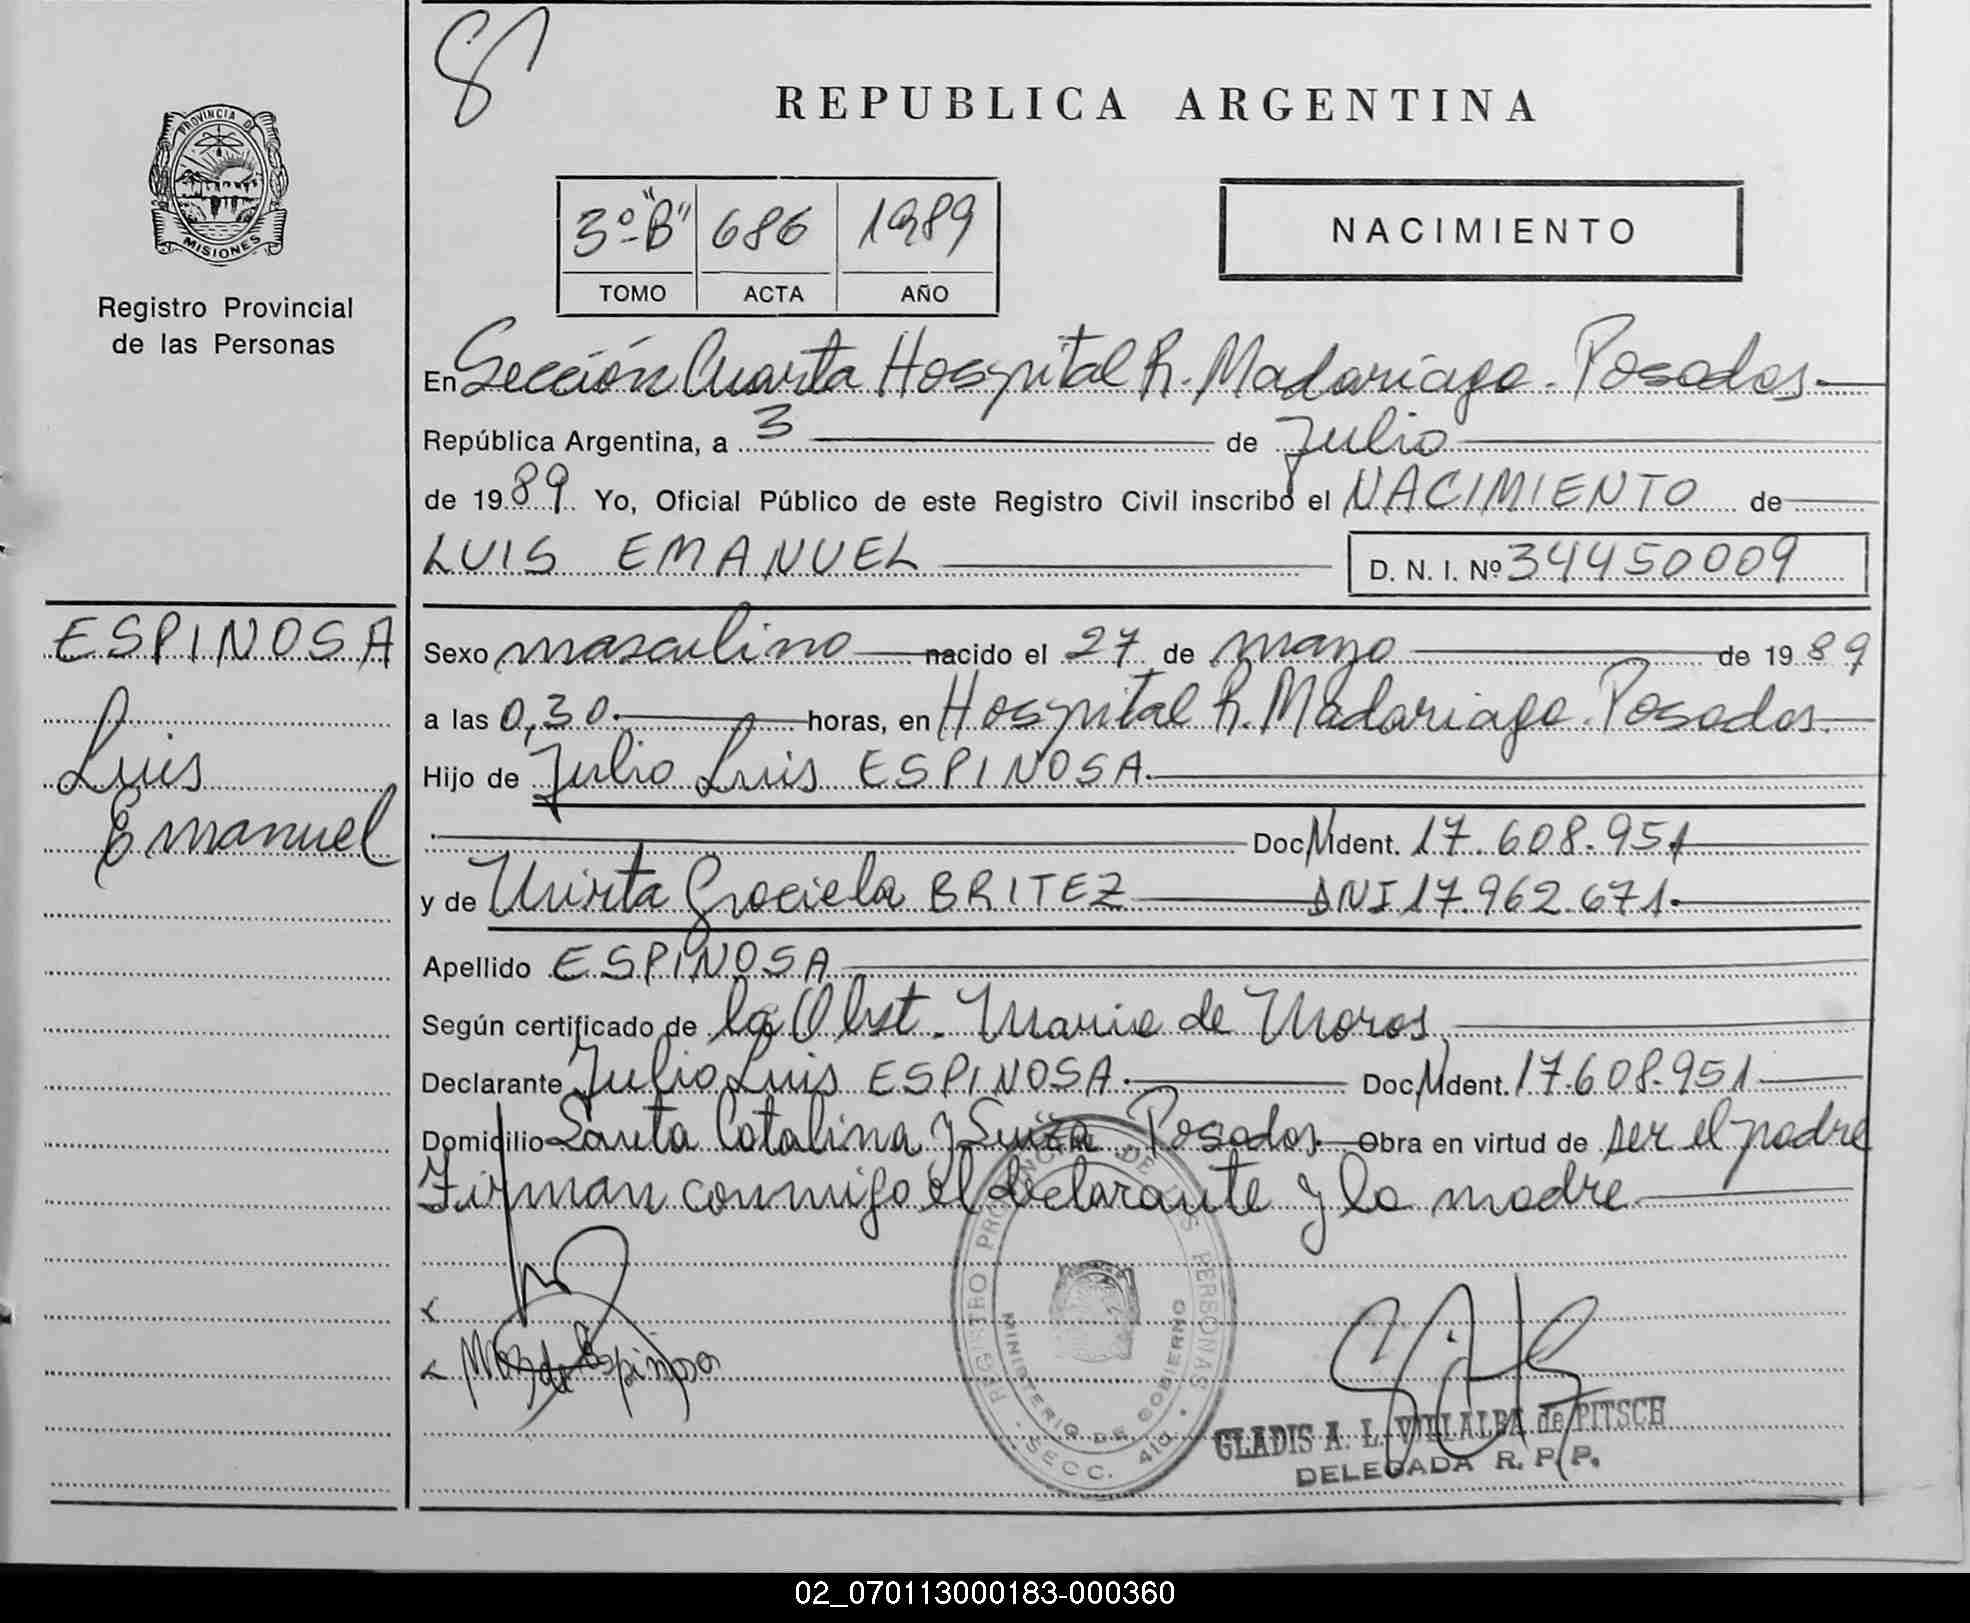 8
REPUBLICA ARGENTINA
PROVINCIA D
MISIONES
Registro Provincial
de las Personas
3º "B" 686 1989
TOMO ACTA AÑO
NACIMIENTO
En Sección Cuarta Hospital R. Madariaga. Posadas.
República Argentina, a 3 de Julio
de 1989. Yo, Oficial Público de este Registro Civil inscribo el NACIMIENTO de
LUIS EMANUEL D. N. I. Nº 34450009
ESPINOSA
Luis
Emanuel
Sexo masculino nacido el 27 de mayo de 1989
a las 0,30. horas, en Hospital R. Madariaga. Posadas.
Hijo de Julio Luis ESPINOSA.
Doc. Ident. 17.608.951
y de Mirta Graciela BRITEZ DNI 17.962.671.
Apellido ESPINOSA
Según certificado de la Obst. Maria de Moros
Declarante Julio Luis ESPINOSA. Doc. Ident. 17.608.951
Domicilio Santa Catalina y Suiza Posadas. Obra en virtud de ser el padre
Firman conmigo el declarante y la madre
REGISTRO PROVINCIAL DE LAS PERSONAS
MINISTERIO DE GOBIERNO
SECC. 4ta.
de Espinosa
GLADIS A. L. VILLALBA de PITSCH
DELEGADA R. P. P.
02_070113000183-000360